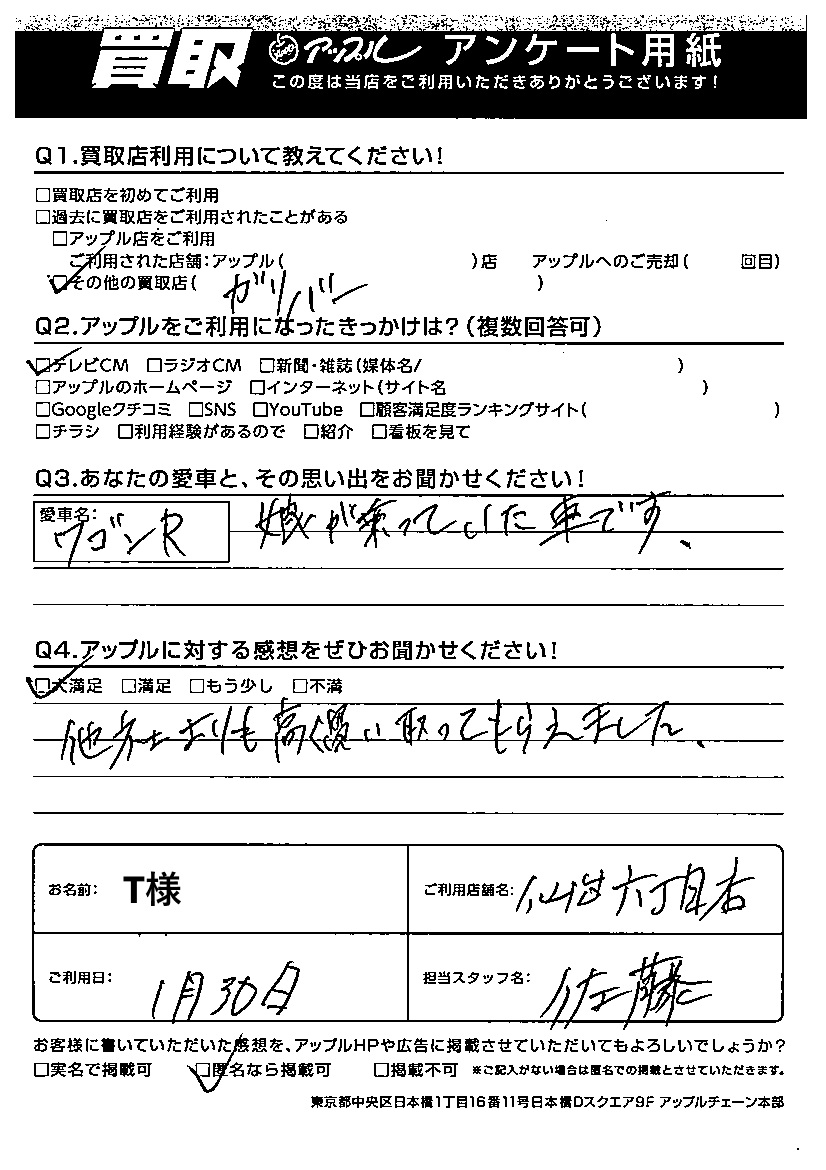 買取 アップル アンケート用紙
この度は当店をご利用いただきありがとうございます!
Q1.買取店利用について教えてください!
□買取店を初めてご利用
□過去に買取店をご利用されたことがある
□アップル店をご利用
ご利用された店舗:アップル( )店 アップルへのご売却( 回目)
☑その他の買取店( ガリバー )
Q2.アップルをご利用になったきっかけは?(複数回答可)
☑テレビCM □ラジオCM □新聞・雑誌(媒体名/ )
□アップルのホームページ □インターネット(サイト名 )
□Googleクチコミ □SNS □YouTube □顧客満足度ランキングサイト( )
□チラシ □利用経験があるので □紹介 □看板を見て
Q3.あなたの愛車と、その思い出をお聞かせください!
愛車名: ワゴンR 娘が乗っていた車です、
Q4.アップルに対する感想をぜひお聞かせください!
☑大満足 □満足 □もう少し □不満
他店よりも高く買い取ってもらえました、
お名前: T様 ご利用店舗名: 仙台六丁目店
ご利用日: 1月30日 担当スタッフ名: 佐藤
お客様に書いていただいた感想を、アップルHPや広告に掲載させていただいてもよろしいでしょうか?
□実名で掲載可 ☑匿名なら掲載可 □掲載不可 ※ご記入がない場合は匿名での掲載とさせていただきます。
東京都中央区日本橋1丁目16番11号日本橋Dスクエア9F アップルチェーン本部